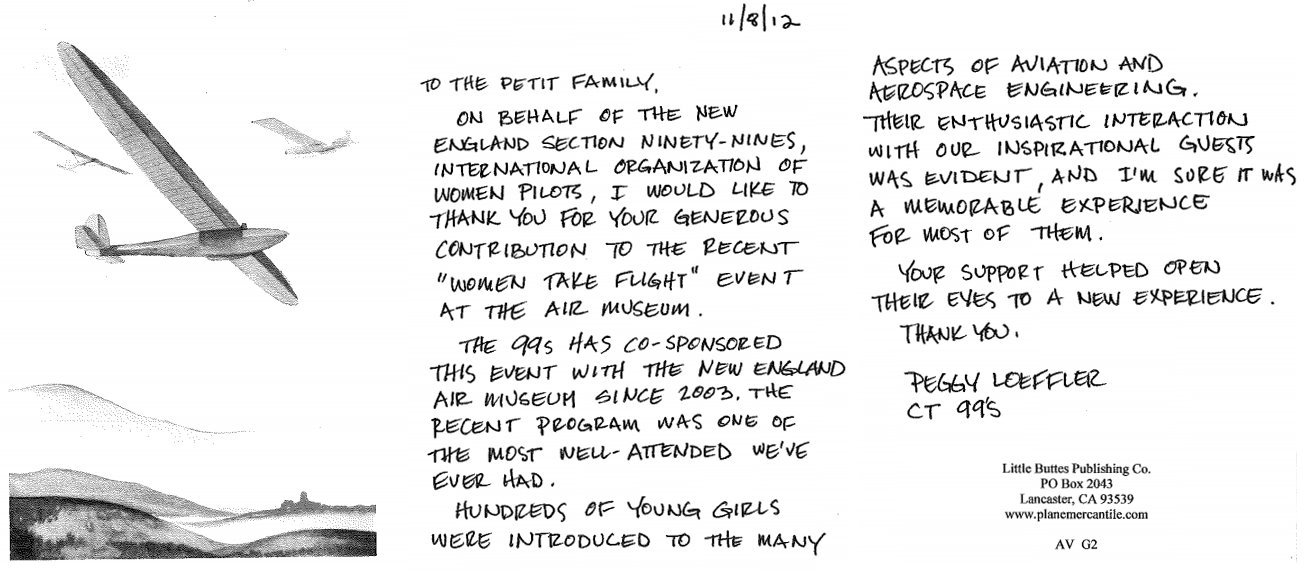 11/8/12
TO THE PETIT FAMILY,
ON BEHALF OF THE NEW
ENGLAND SECTION NINETY-NINES,
INTERNATIONAL ORGANIZATION OF
WOMEN PILOTS, I WOULD LIKE TO
THANK YOU FOR YOUR GENEROUS
CONTRIBUTION TO THE RECENT
"WOMEN TAKE FLIGHT" EVENT
AT THE AIR MUSEUM.
THE 99s HAS CO-SPONSORED
THIS EVENT WITH THE NEW ENGLAND
AIR MUSEUM SINCE 2003. THE
RECENT PROGRAM WAS ONE OF
THE MOST WELL-ATTENDED WE'VE
EVER HAD.
HUNDREDS OF YOUNG GIRLS
WERE INTRODUCED TO THE MANY
ASPECTS OF AVIATION AND
AEROSPACE ENGINEERING.
THEIR ENTHUSIASTIC INTERACTION
WITH OUR INSPIRATIONAL GUESTS
WAS EVIDENT, AND I'M SURE IT WAS
A MEMORABLE EXPERIENCE
FOR MOST OF THEM.
YOUR SUPPORT HELPED OPEN
THEIR EYES TO A NEW EXPERIENCE.
THANK YOU.
PEGGY LOEFFLER
CT 99'S
Little Buttes Publishing Co.
PO Box 2043
Lancaster, CA 93539
www.planemercantile.com
AV G2